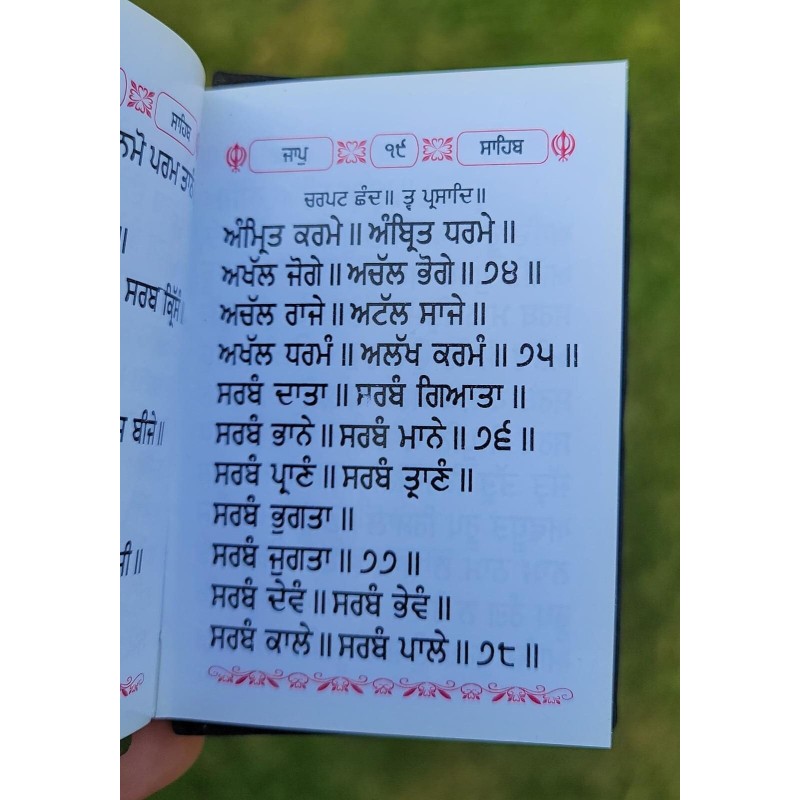 ਸਾਹਿਬ
ਨਮੋ ਪਰਮ
ਸਰਬ
ਬੀਜੇ॥
ਜਾਪੁ ੧੯ ਸਾਹਿਬ
ਚਰਪਟ ਛੰਦ॥ ਤ੍ਵ ਪ੍ਰਸਾਦਿ॥
ਅੰਮ੍ਰਿਤ ਕਰਮੇ॥ ਅੰਬ੍ਰਿਤ ਧਰਮੇ॥
ਅਖੱਲ ਜੋਗੇ॥ ਅਚੱਲ ਭੋਗੇ॥੭੪॥
ਅਚੱਲ ਰਾਜੇ॥ ਅਟੱਲ ਸਾਜੇ॥
ਅਖੱਲ ਧਰਮੰ॥ ਅਲੱਖ ਕਰਮੰ॥੭੫॥
ਸਰਬੰ ਦਾਤਾ॥ ਸਰਬੰ ਗਿਆਤਾ॥
ਸਰਬੰ ਭਾਨੇ॥ ਸਰਬੰ ਮਾਨੇ॥੭੬॥
ਸਰਬੰ ਪ੍ਰਾਣੰ॥ ਸਰਬੰ ਤ੍ਰਾਣੰ॥
ਸਰਬੰ ਭੁਗਤਾ॥
ਸਰਬੰ ਜੁਗਤਾ॥੭੭॥
ਸਰਬੰ ਦੇਵੰ॥ ਸਰਬੰ ਭੇਵੰ॥
ਸਰਬੰ ਕਾਲੇ॥ ਸਰਬੰ ਪਾਲੇ॥੭੮॥